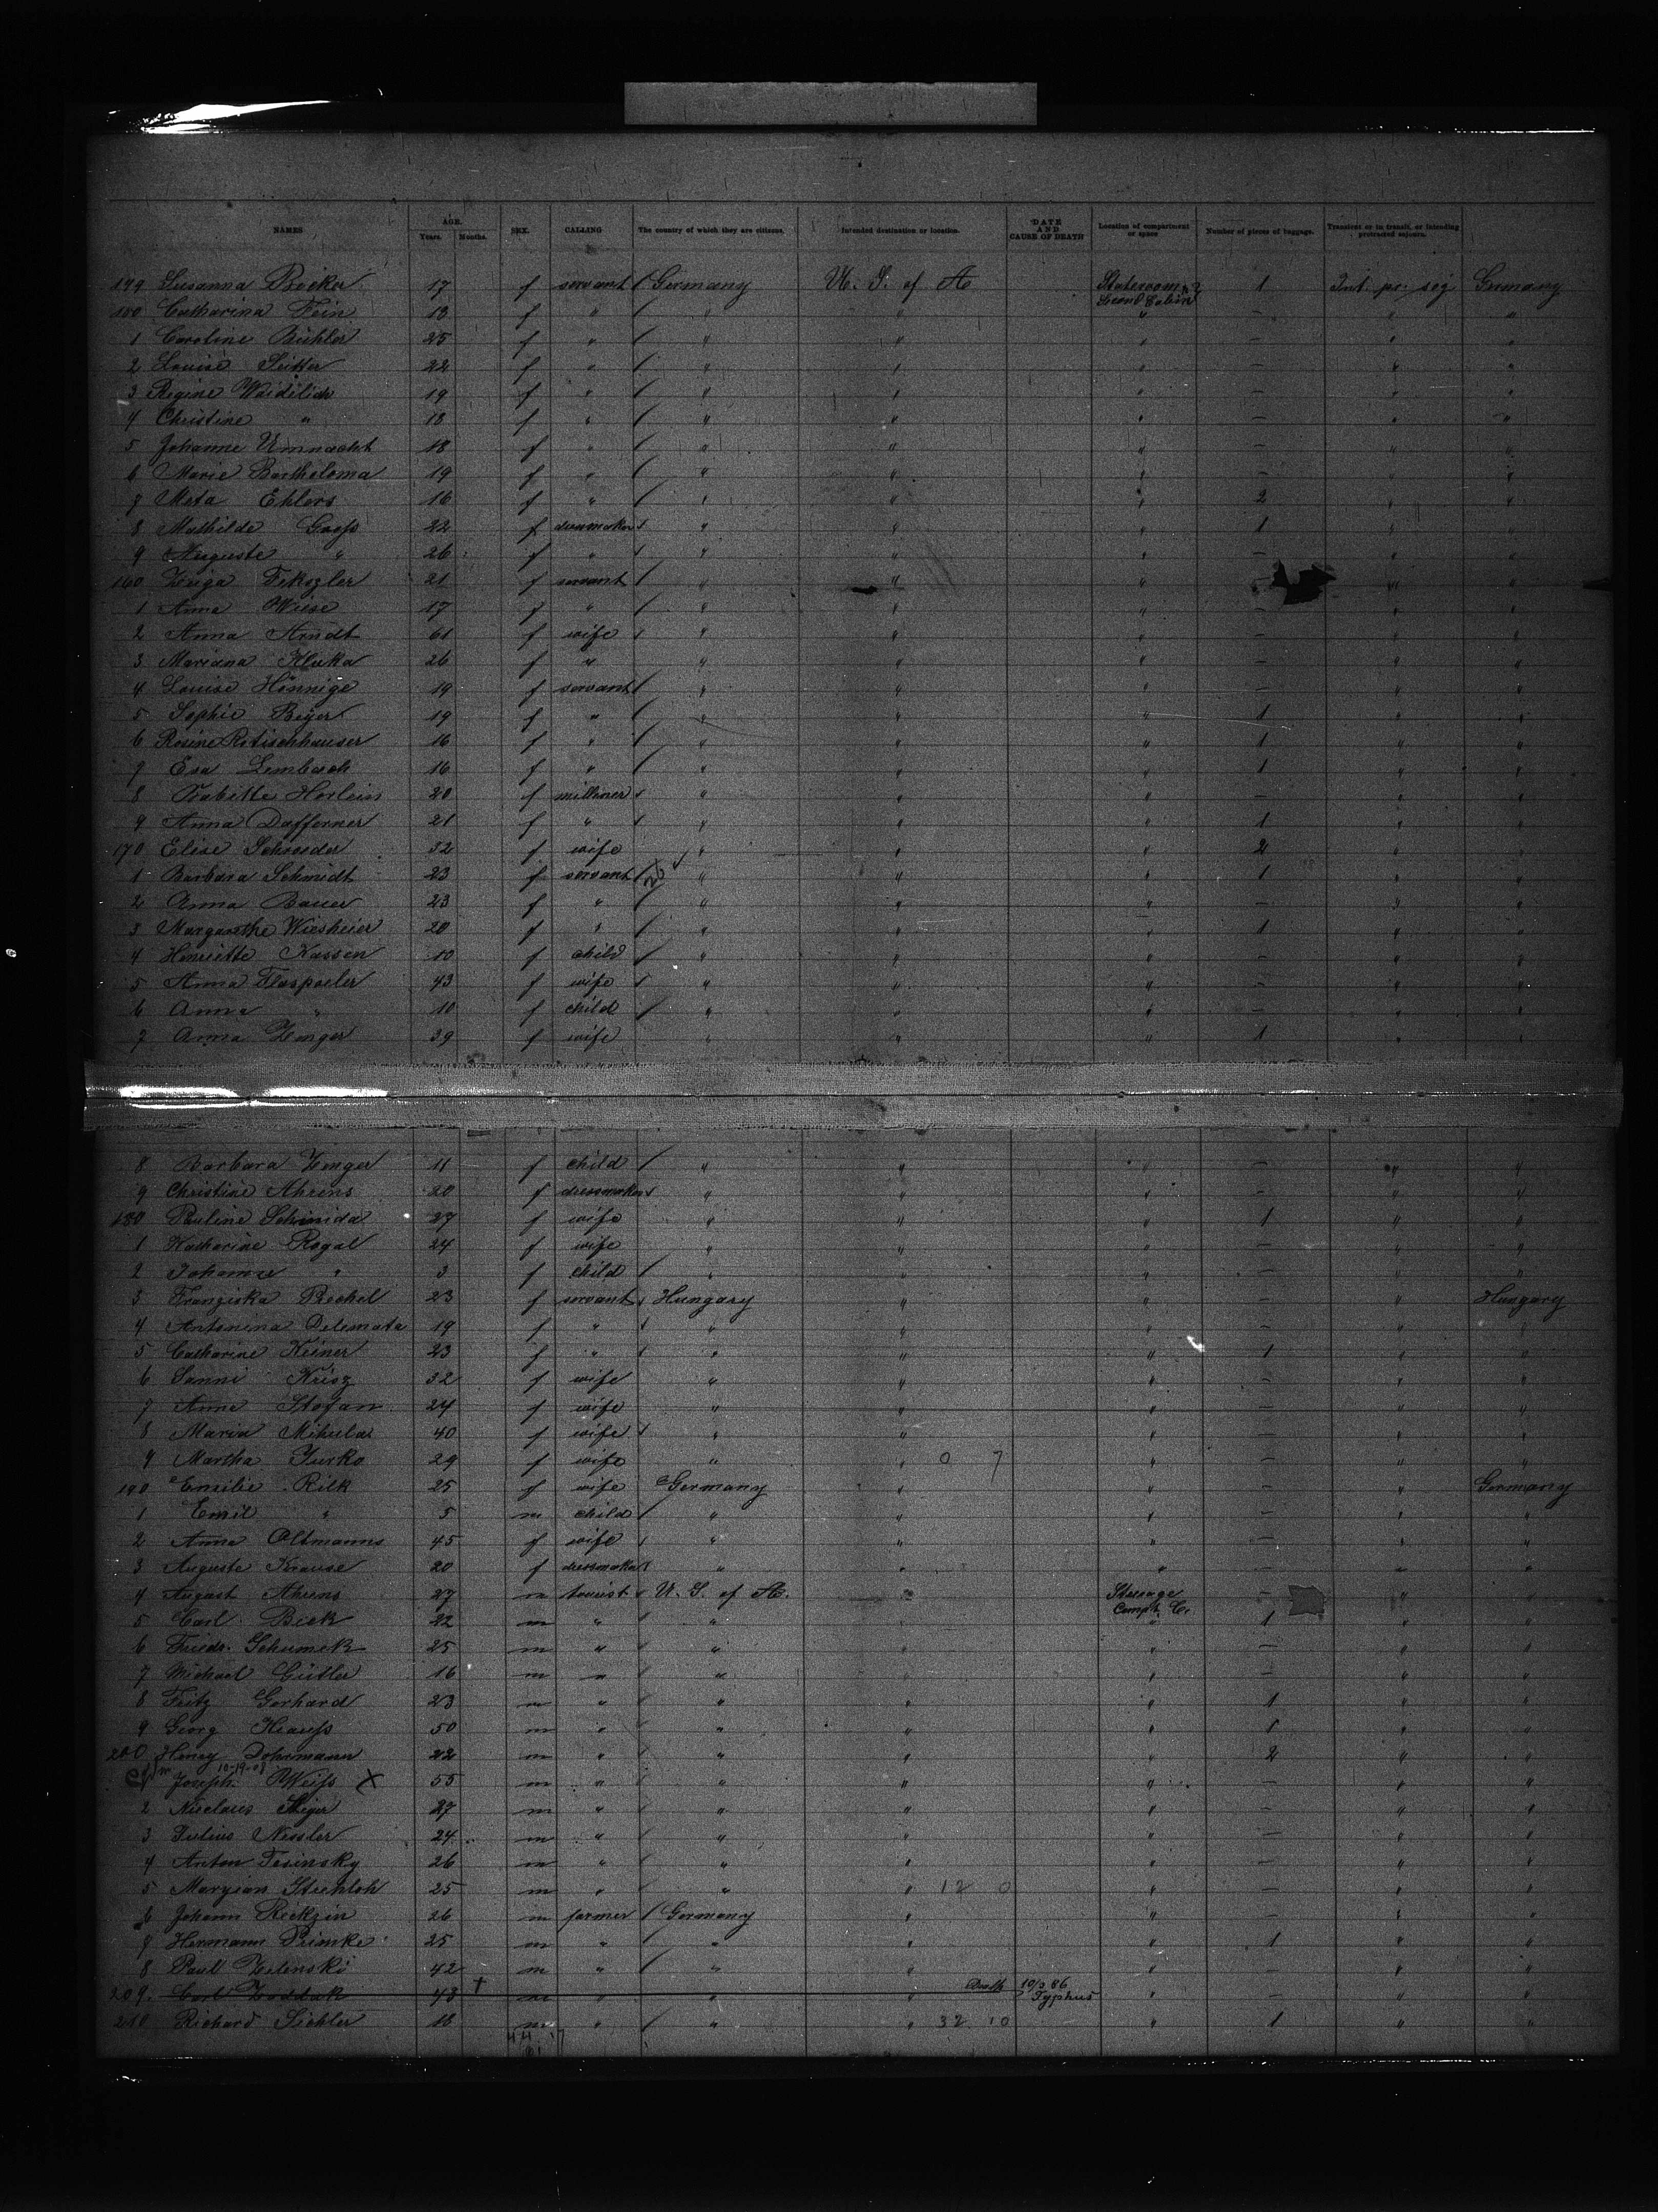 NAMES AGE. Years. Months. SEX. CALLING The country of which they are citizens. Intended destination or location. DATE AND CAUSE OF DEATH Location of compartment or space Number of pieces of baggage. Transient or in transit, or intending protracted sojourn.
149 Susanna Becker 17 f servant Germany U. S. of A Stateroom 1 Int. pr. soj Germany
150 Catharina Fein 18 f " " " " — " "
1 Caroline Bühler 25 f " " " " — " "
2 Louise 22 f " " " " — " "
3 Regine Waidelich 19 f " " " " — " "
4 Christine " 18 f " " " " — " "
5 Johanne Umnacht 18 f " " " " — " "
6 Marie Bartheloma 19 f " " " " — " "
7 Meta Ehlers 16 f " " " " 2 " "
8 Mathilde 22 f dressmaker " " " 1 " "
9 Auguste " 26 f " " " " — " "
160 21 f servant " " " " "
1 Anna Wiese 17 f " " " " — " "
2 Anna Arndt 61 f wife " " " — " "
3 Mariana Kluka 26 f " " " " — " "
4 Louise Hönnige 19 f servant " " " — " "
5 Sophie Beyer 19 f " " " " 1 " "
6 Rosine Rotischhauser 16 f " " " " 1 " "
7 Eva Lembach 16 f " " " " 1 " "
8 Babette Horlein 20 f milliner " " " — " "
9 Anna Dafferner 21 f " " " " 1 " "
170 Elise Schroeder 32 f wife " " " 2 " "
1 Barbara Schmidt 23 f servant " " " 1 " "
2 Anna Bauer 23 f " " " " — " "
3 Margarethe Wiesheier 20 f " " " " 1 " "
4 Henriette Kassen 10 f child " " " — " "
5 Anna Flaspoeler 43 f wife " " " — " "
6 Anna " 10 f child " " " — " "
7 Anna Zenger 39 f wife " " " 1 " "
8 Barbara Zenger 11 f child " " " — " "
9 Christine Ahrens 20 f dressmaker " " " — " "
180 Pauline Schmida 27 f wife " " " 1 " "
1 Katharine Rogal 24 f wife " " " — " "
2 Johanne " 3 f child " " " — " "
3 Franziska Bechel 23 f servant Hungary " " — " Hungary
4 Antonina Delemata 19 f " " " " — " "
5 Catharine Keiner 23 f " " " " 1 " "
6 Sanni Krisz 32 f wife " " " — " "
7 Anna Stofan 24 f wife " " " — " "
8 Maria Mihula 40 f wife " " " — " "
9 Martha Jurko 29 f wife " " 0 7 " — " "
190 Emilie Rilk 25 f wife Germany " " — " Germany
1 Emil " 5 m child " " " — " "
2 Anna Oltmanns 45 f wife " " " — " "
3 Auguste Krause 20 f dressmaker " " " — " "
4 August Ahrens 27 m tourist U. S. of A. " Steerage Compt. C. — " "
5 Carl Beck 22 m " " " 1 " "
6 Friedr. Schumck 25 m " " " " — " "
7 Michael Gütler 16 m " " " " — " "
8 Fritz Gerhard 23 m " " " " 1 " "
9 Georg Krauss 50 m " " " " 1 " "
200 Henry Dohrmann 22 m " " " " 2 " "
10-19-08
Joseph Weiss X 55 m " " " " — " "
2 Nicolaus Steger 27 m " " " " — " "
3 Julius Nessler 24 m " " " " — " "
4 Anton Tesinsky 26 m " " " " — " "
5 Maryian Strehloh 25 m " " " 12 0 " — " "
6 Johann Reckzin 26 m farmer Germany " " — " "
7 Hermann Primke 25 m " " " " 1 " "
8 Paul Zelenski 42 m " " " " — " "
209. Carl Zoddak 43 † m " " " Death 10/3 86 Typhus " — " "
210 Richard Sichler 18 m " " " 32 10 " 1 " "
44 17